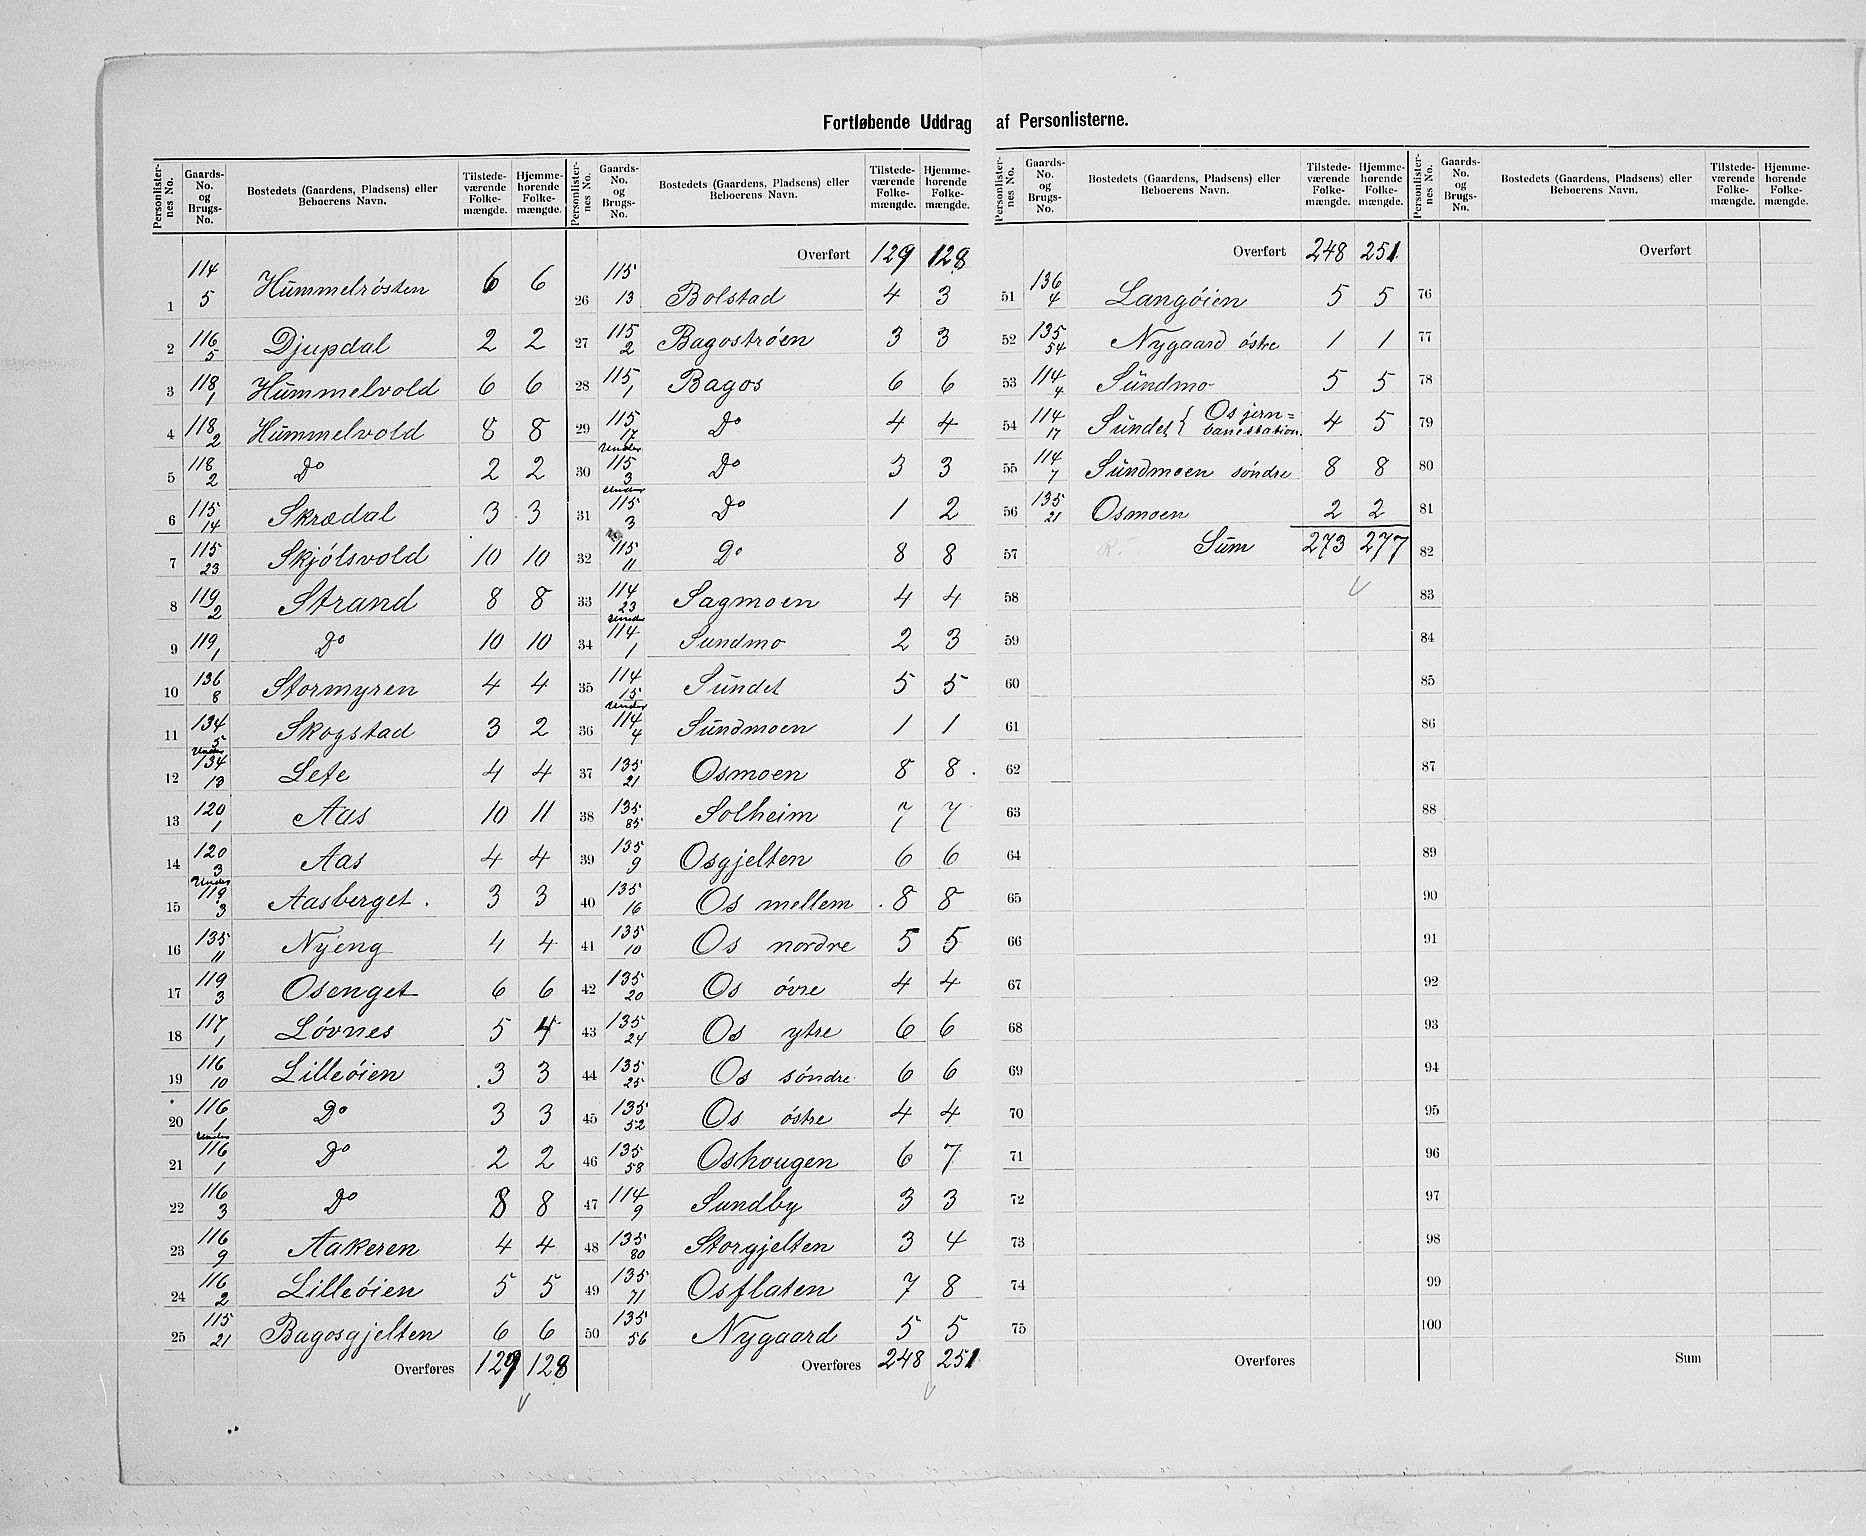 Fortløbende Uddrag af Personlisterne.
Personlisternes No. | Gaards-No. og Brugs-No. | Bostedets (Gaardens, Pladsens) eller Beboerens Navn. | Tilstedeværende Folkemængde. | Hjemmehørende Folkemængde.
1 114/5 Hummelrösten 6 6
2 116/5 Djupdal 2 2
3 118/1 Hummelvold 6 6
4 118/2 Hummelvold 8 8
5 118/2 Do 2 2
6 115/14 Skrædal 3 3
7 115/23 Skjölsvold 10 10
8 119/2 Strand 8 8
9 119/1 Do 10 10
10 136/8 Stormyren 4 4
11 134/5 Skogstad 3 2
12 Under 134/13 Lete 4 4
13 120/1 Aas 10 11
14 120/3 Aas 4 4
15 Under 119/3 Aasberget. 3 3
16 135/11 Nyeng 4 4
17 119/3 Osenget 6 6
18 117/1 Lövnes 5 4
19 116/10 Lilleöien 3 3
20 116/1 Do 3 3
21 Under 116/1 Do 2 2
22 116/3 Do 8 8
23 116/9 Aakeren 4 4
24 116/2 Lilleöien 5 5
25 115/21 Bagosgjelten 6 6
Overføres 129 128
Personlisternes No. | Gaards-No. og Brugs-No. | Bostedets (Gaardens, Pladsens) eller Beboerens Navn. | Tilstedeværende Folkemængde. | Hjemmehørende Folkemængde.
Overført 129 128
26 115/13 Bolstad 4 3
27 115/2 Bagoströen 3 3
28 115/1 Bagos 6 6
29 115/17 Do 4 4
30 Under 115/3 Do 3 3
31 Under 115/3 Do 1 2
32 115/11 Do 8 8
33 114/23 Sagmoen 4 4
34 Under 114/1 Sundmo 2 3
35 114/15 Sundet 5 5
36 Under 114/4 Sundmoen 1 1
37 135/21 Osmoen 8 8
38 135/85 Solheim 7 7
39 135/9 Osgjelten 6 6
40 135/16 Os mellem 8 8
41 135/10 Os nordre 5 5
42 135/20 Os övre 4 4
43 135/24 Os ytre 6 6
44 135/25 Os söndre 6 6
45 135/52 Os östre 4 4
46 135/58 Oshougen 6 7
47 114/9 Sundby 3 3
48 135/80 Storgjelten 3 4
49 135/71 Osflaten 7 8
50 135/56 Nygaard 5 5
Overføres 248 251
Personlisternes No. | Gaards-No. og Brugs-No. | Bostedets (Gaardens, Pladsens) eller Beboerens Navn. | Tilstedeværende Folkemængde. | Hjemmehørende Folkemængde.
Overført 248 251
51 136/4 Langöien 5 5
52 135/54 Nygaard östre 1 1
53 114/4 Sundmo 5 5
54 114/17 Sundet { Os jern= banestation. 4 5
55 114/7 Sundmoen söndre 8 8
56 135/21 Osmoen 2 2
57 Sum 273 277
58
59
60
61
62
63
64
65
66
67
68
69
70
71
72
73
74
75
Overføres
Personlisternes No. | Gaards-No. og Brugs-No. | Bostedets (Gaardens, Pladsens) eller Beboerens Navn. | Tilstedeværende Folkemængde. | Hjemmehørende Folkemængde.
Overført
76
77
78
79
80
81
82
83
84
85
86
87
88
89
90
91
92
93
94
95
96
97
98
99
100
Sum